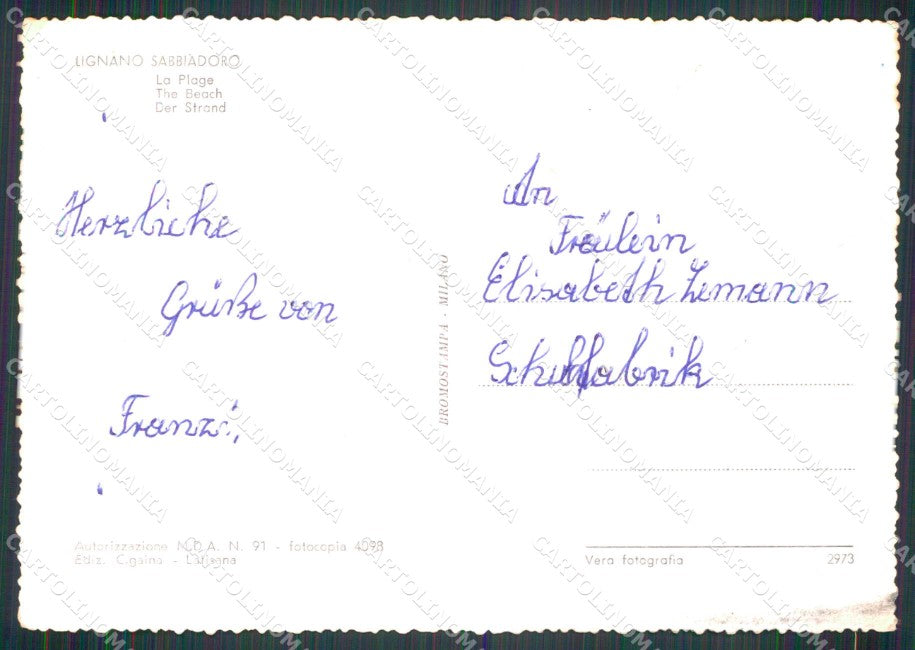 LIGNANO SABBIADORO
La Plage
The Beach
Der Strand
Herzliche
Grüße von
Franzi,
An
Fräulein
Elisabeth Lemann
Schuhfabrik
BROMOSTAMPA - MILANO
Autorizzazione N.D.A. N. 91 - fotocopia 4098
Ediz. C.gaina - Latisana
Vera fotografia
2973
CARTOLINOMANIA